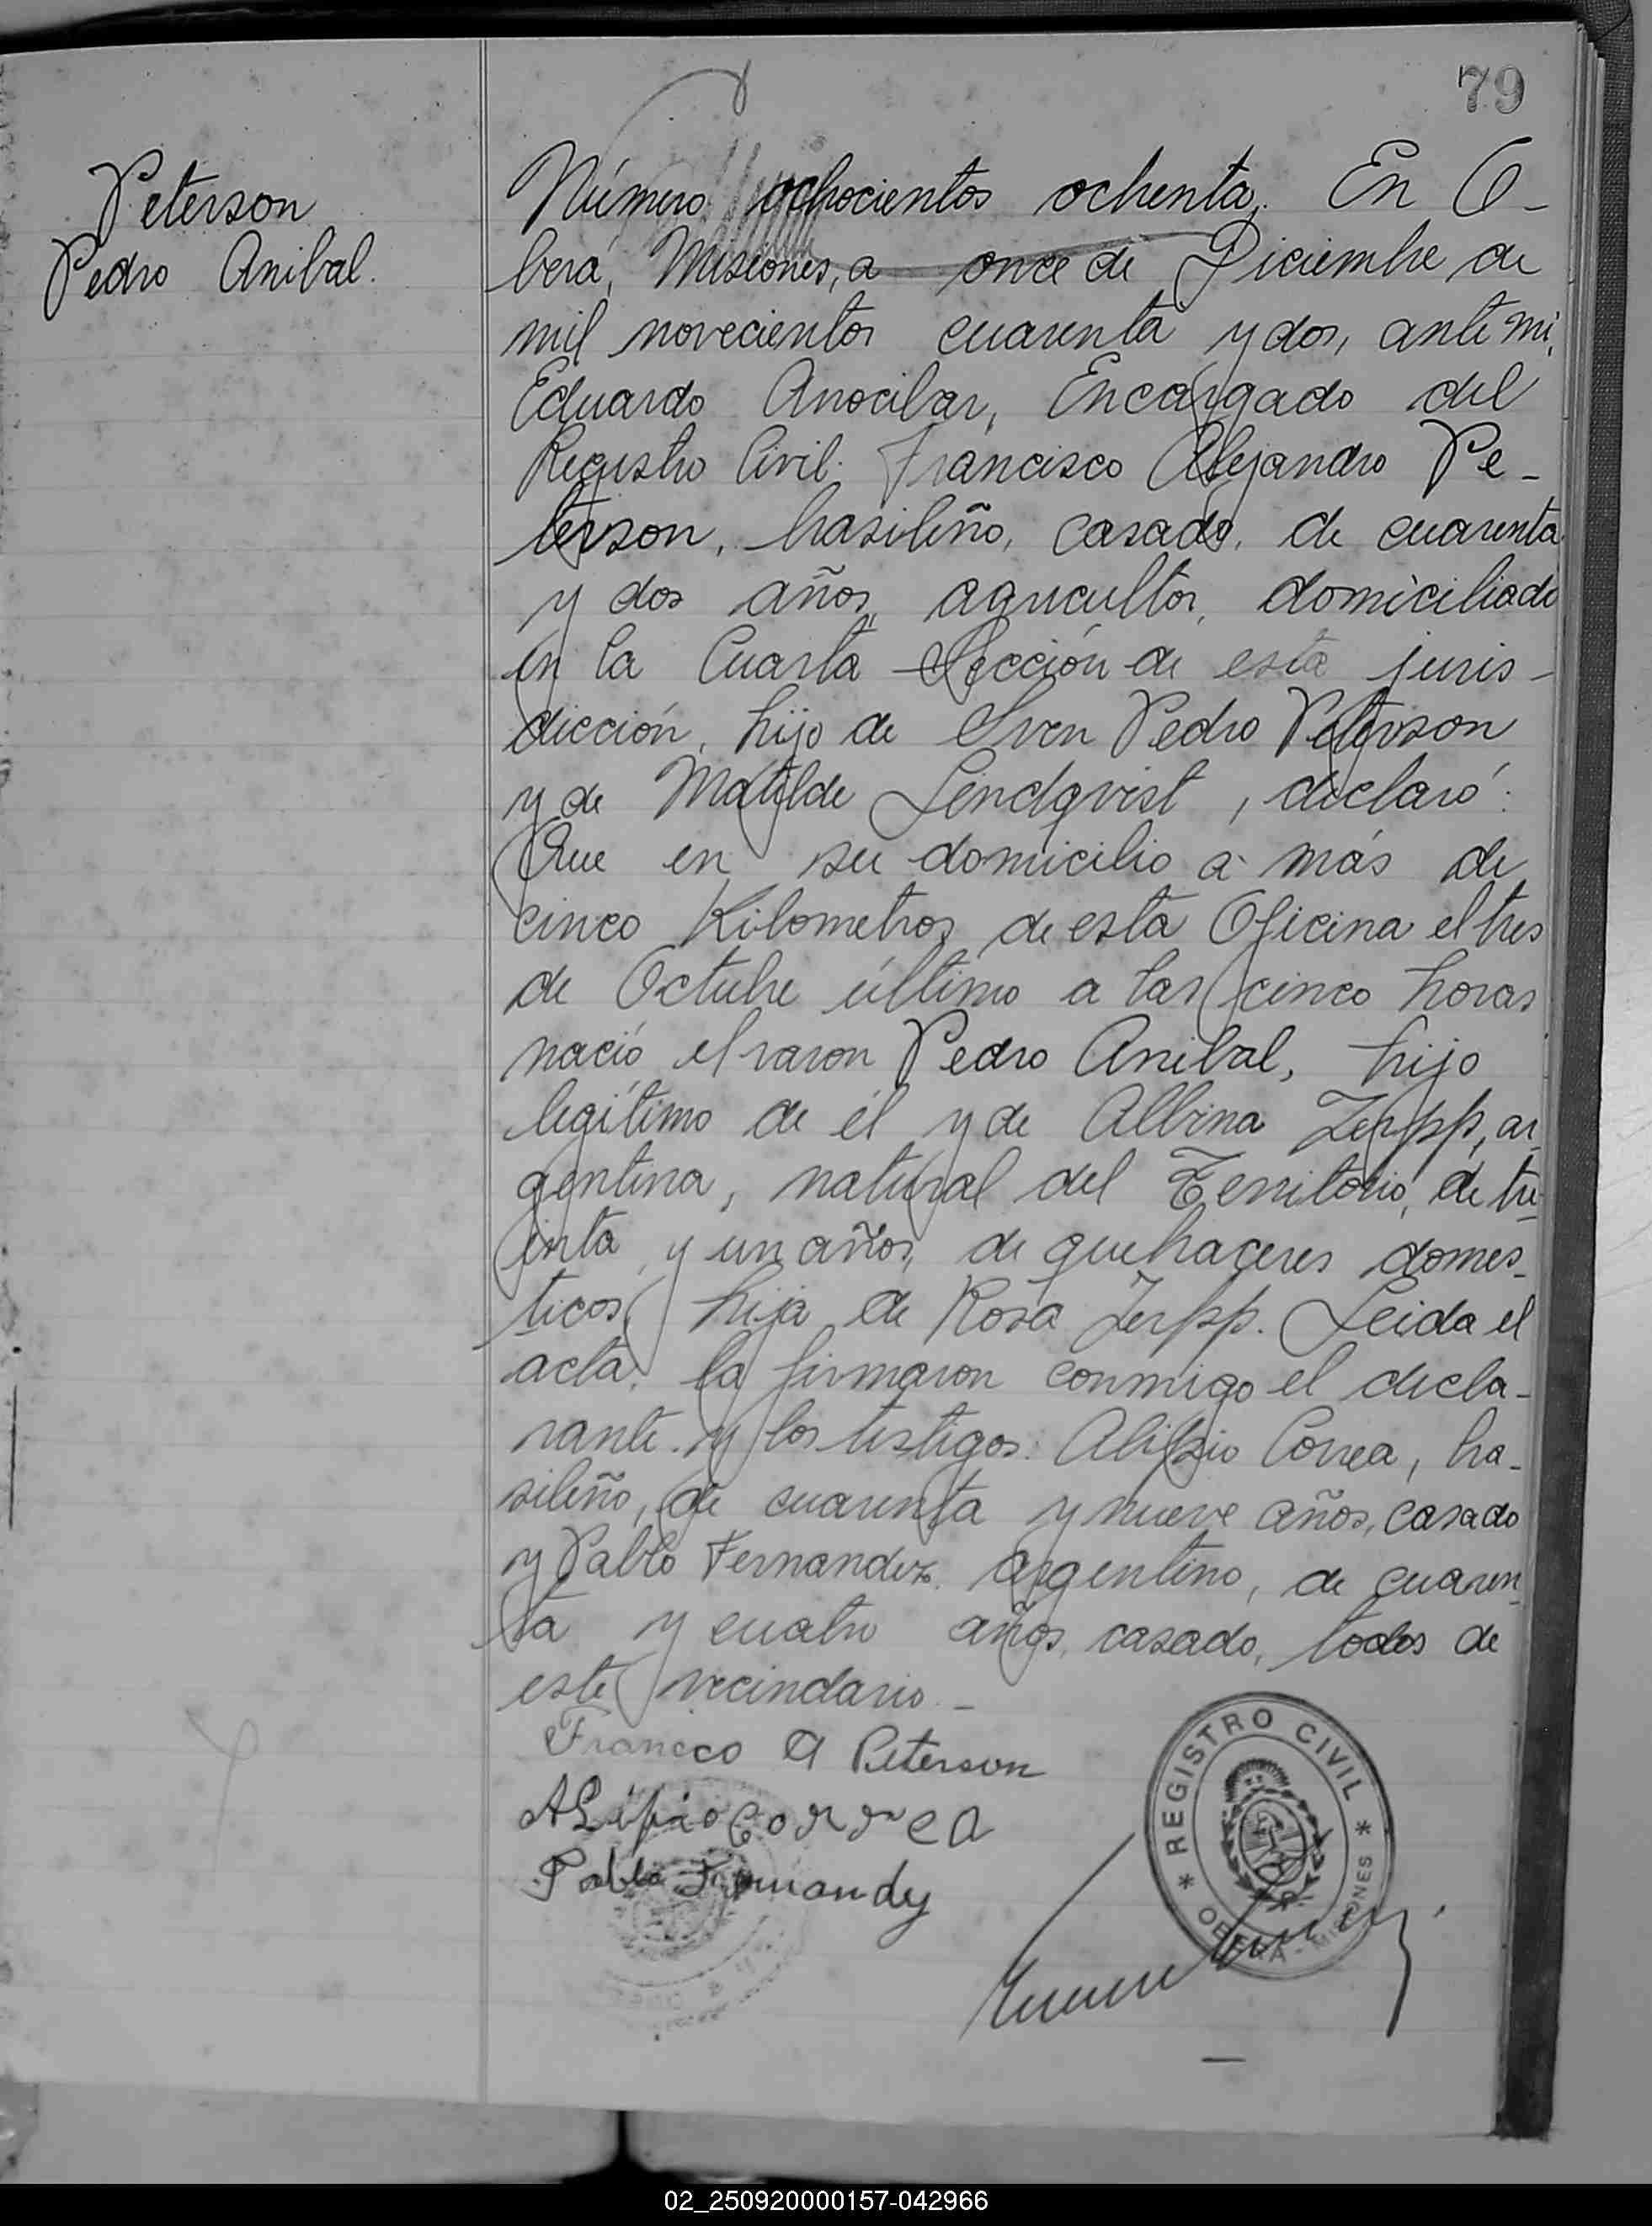 79
Peterson
Pedro Anibal.
Número ochocientos ochenta. En O-
berá, Misiones, a once de Diciembre de
mil novecientos cuarenta y dos, ante mi,
Eduardo Anocibar, Encargado del
Registro Civil. Francisco Alejandro Pe-
terson, brasileño, casado, de cuarenta
y dos años, agricultor, domiciliado
en la Cuarta Sección de esta juris-
dicción, hijo de Sven Pedro Peterson
y de Matilde Lindqvist, declaró:
Que en su domicilio a más de
cinco Kilometros de esta Oficina el tres
de Octubre último a las cinco horas
nació el varon Pedro Anibal, hijo
legítimo de él y de Albina Zerpp, ar-
gentina, natural del Territorio, de tre-
inta y un años, de quehaceres domes-
ticos, hija de Rosa Zerpp. Leida el
acta, la firmaron conmigo el decla-
rante y los testigos: Alipio Correa, bra-
sileño, de cuarenta y nueve años, casado
y Pablo Fernandez, argentino, de cuaren-
ta y cuatro años, casado, todos de
este vecindario.-
Francco A Peterson
ALipio Correa
Pablo Fernandez
* REGISTRO CIVIL *
OBERA - MISIONES
02_250920000157-042966